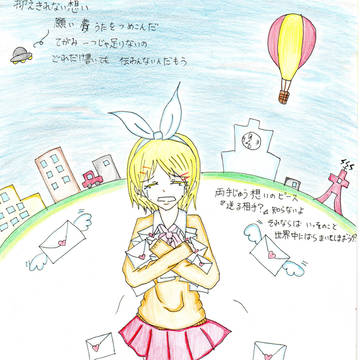 抑えきれない想い
願い 音 うたをつめこんだ
てがみ一つじゃ足りないの
どれだけ書いても 伝みんないんだもう
両手じゅう想いのピース
『送る相手?』知らないよ
それならば いっそのこと
世界中にばらまいてしまおう!?